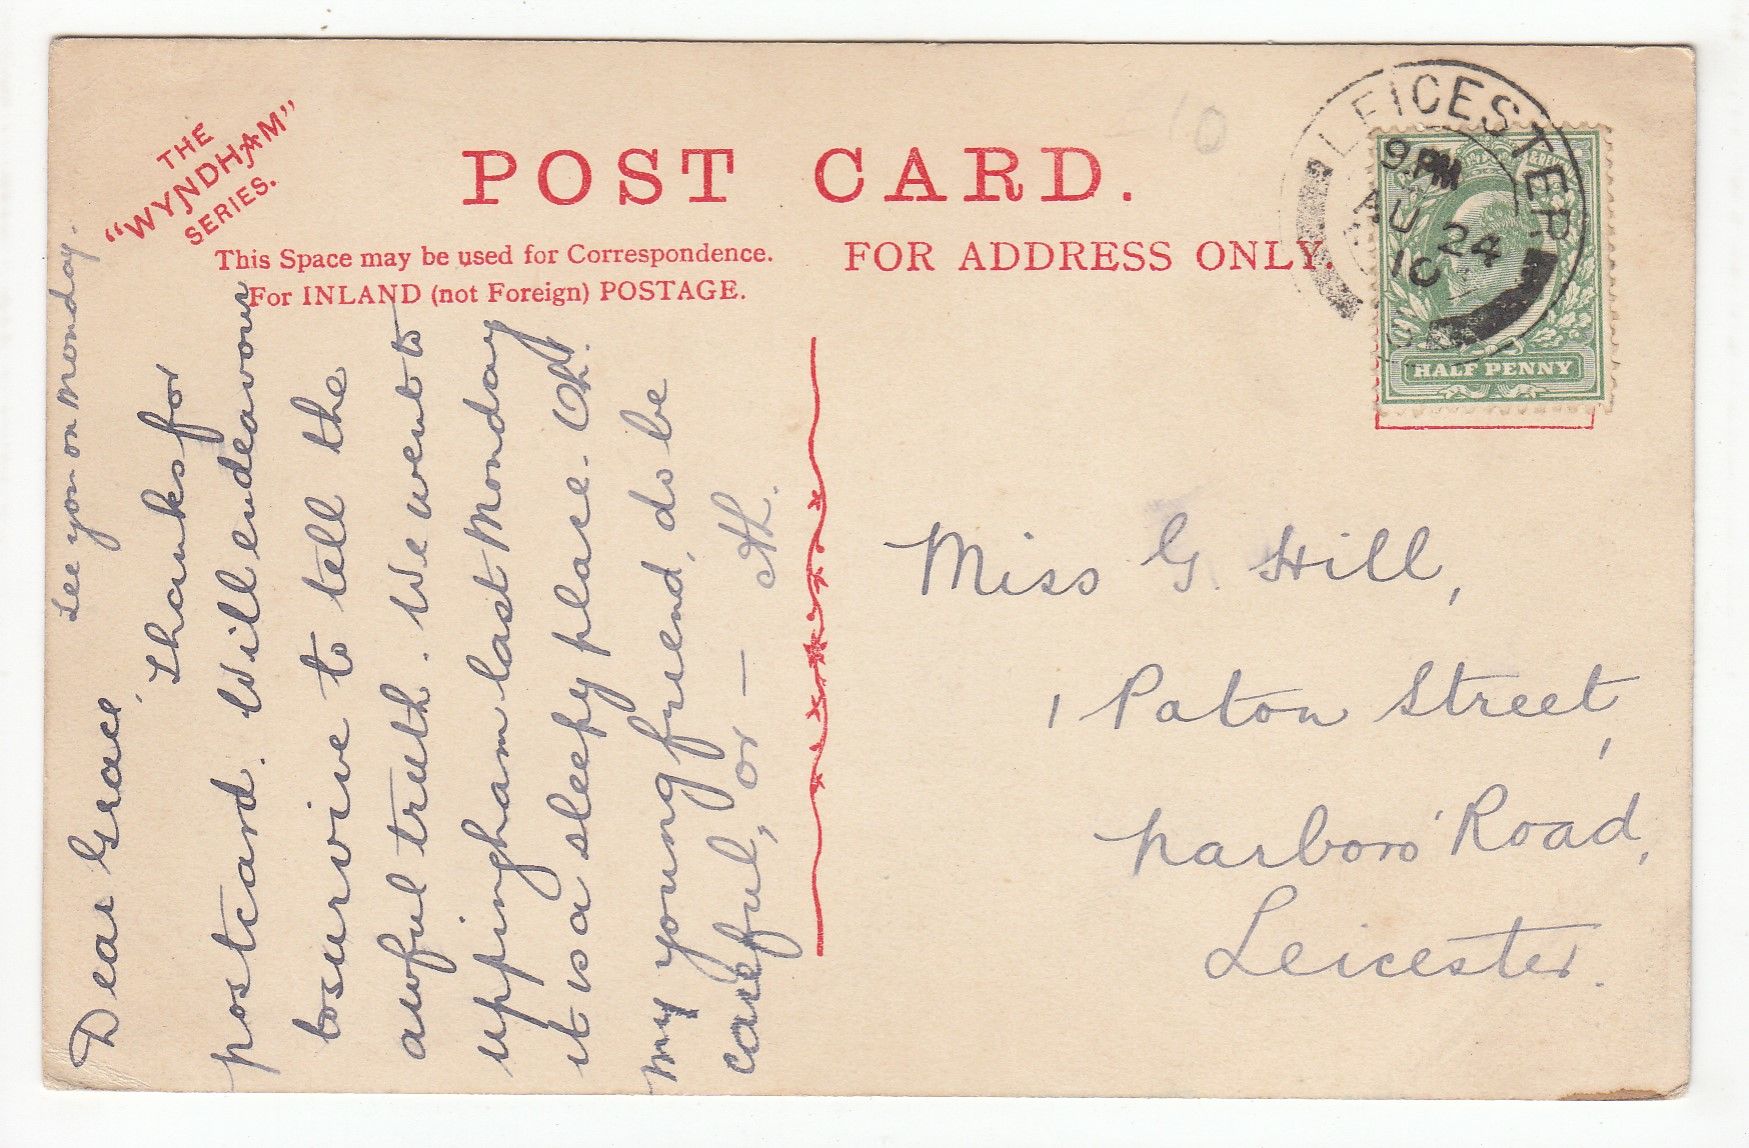 THE
"WYNDHAM"
SERIES.
POST CARD.
This Space may be used for Correspondence.
For INLAND (not Foreign) POSTAGE.
FOR ADDRESS ONLY.
LEICESTER
9.PM
AU 24
10
HALF PENNY
10
See you on Monday.
Dear Grace,
Thanks for
postcard. Will endeavour
to survive to tell the
awful truth. We went to
uppingham last Monday
it is a sleepy place. Oh!
my young friend, do be
careful, or — AH.
Miss G. Hill,
1 Paton Street,
Narboro' Road,
Leicester.